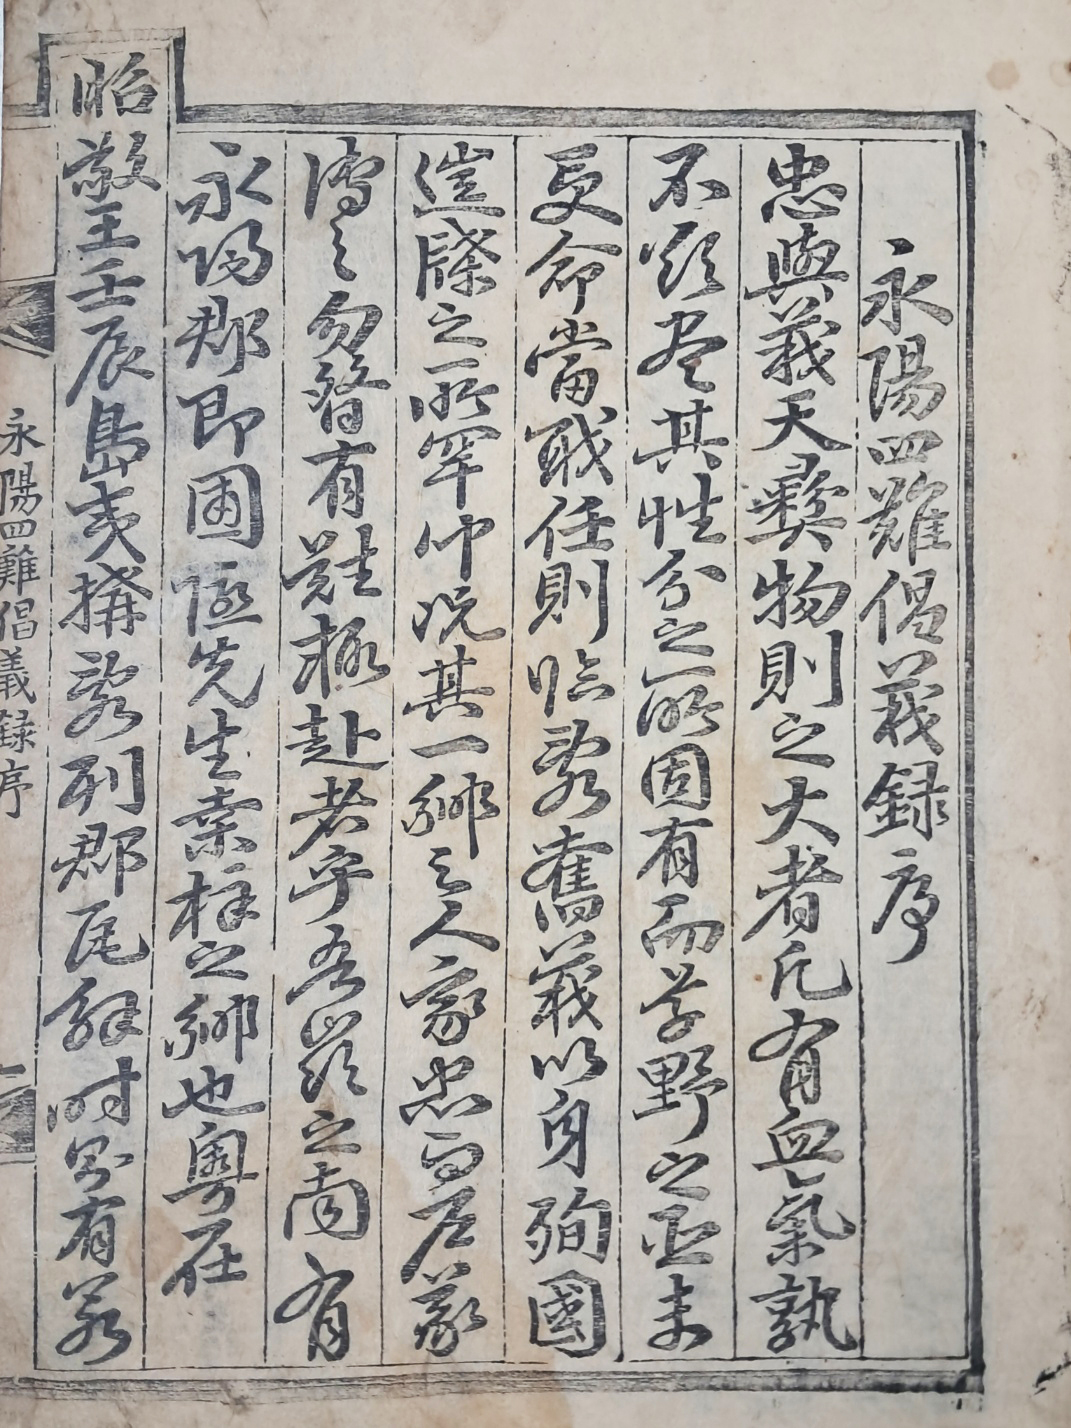 永陽四難倡義錄序
忠與義天彛物則之大者凡有血氣孰
不欲盡其性分之所固有而草野之臣未
受命當職任則臨亂奮義以身殉國
蓋隙之所罕伸况其一鄕之人家忠而戶義
傳之勿替有難極赴者乎吾嶺之南有
永陽郡卽圃隱先生桑梓之鄕也粤在
昭敬王壬辰島夷搆亂列郡瓦解時則有若
永陽四難倡義錄序